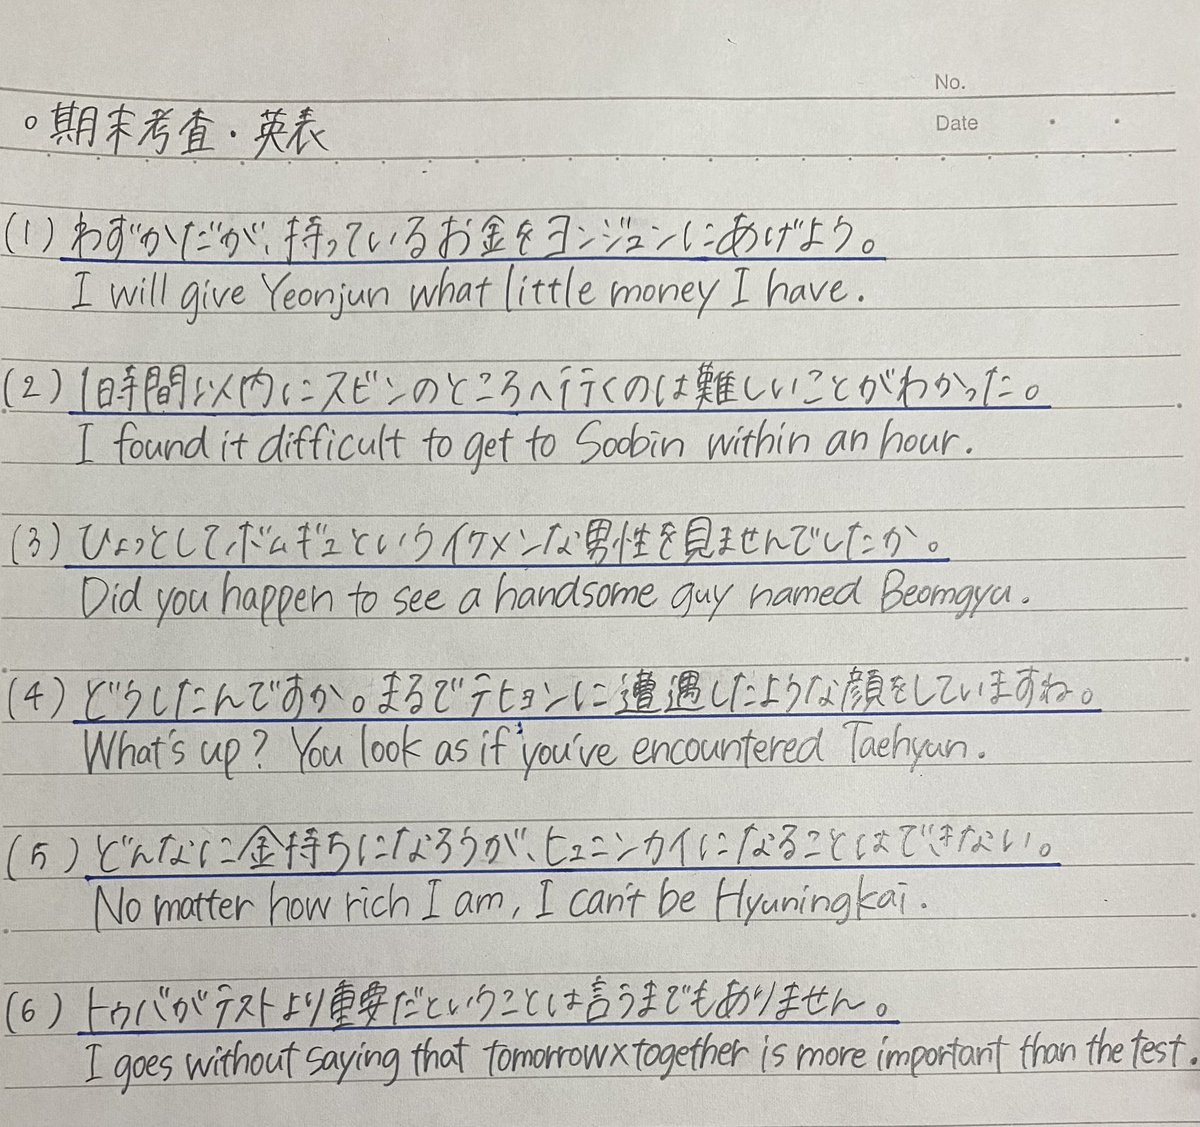 No.
Date
○期末考査・英表
(1) わずかだが、持っているお金をヨンジュンにあげよう。
I will give Yeonjun what little money I have.
(2) 1時間以内にスビンのところへ行くのは難しいことがわかった。
I found it difficult to get to Soobin within an hour.
(3) ひょっとして、ボムギュというイケメンな男性を見ませんでしたか。
Did you happen to see a handsome guy named Beomgyu.
(4) どうしたんですか。まるでテヒョンに遭遇したような顔をしていますね。
What's up? You look as if you've encountered Taehyun.
(5) どんなに金持ちになろうが、ヒュニンカイになることはできない。
No matter how rich I am, I can't be Hyuningkai.
(6) トゥバがテストより重要だということは言うまでもありません。
I goes without saying that tomorrow×together is more important than the test.